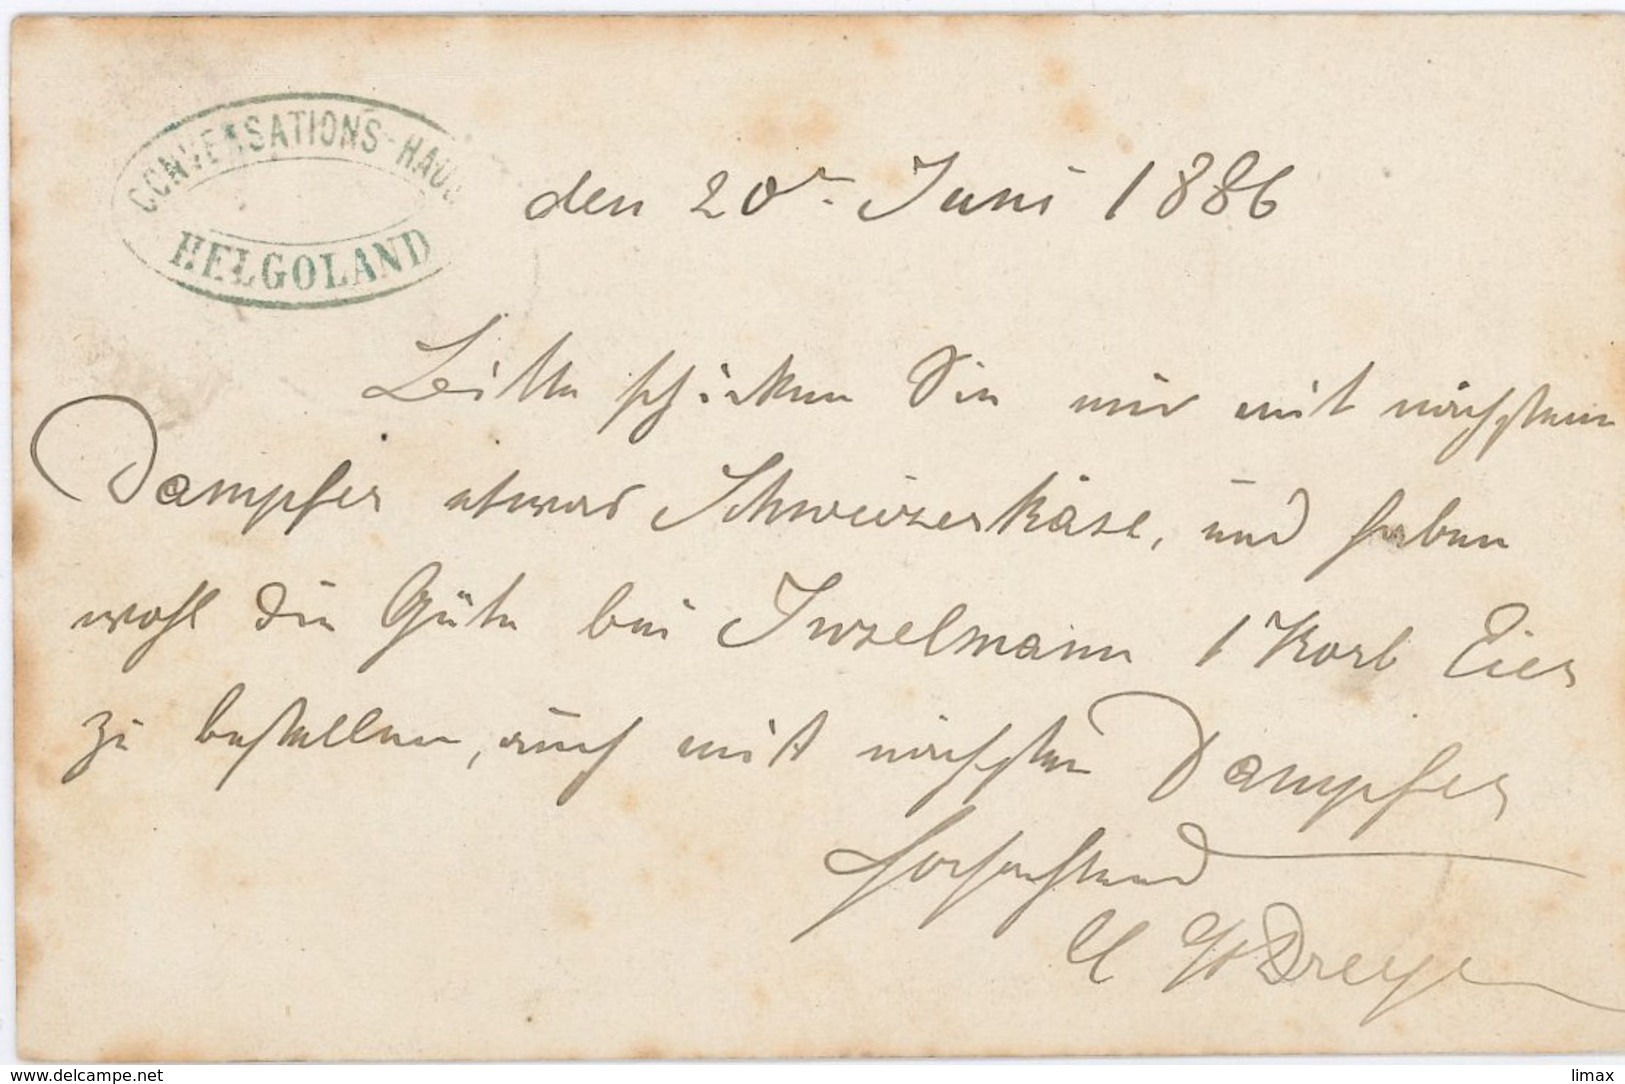 CONVERSATIONS-HAUS
HELGOLAND
den 20r Juni 1886
Bitte schicken Sie mir mit nächstem
Dampfer etwas Schweizerkäse, und haben
wohl die Güte bei Inselmann 1 Korb Eier
zu bestellen, auch mit nächsten Dampfer
Hochachtend
Dreyer
www.delcampe.net
limax